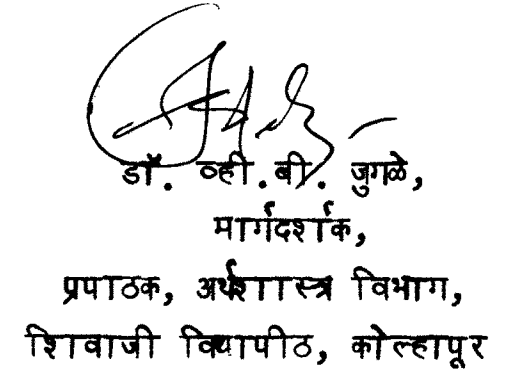 डॉ. व्ही.बी. जुगळे,
मार्गदर्शक,
प्रपाठक, अर्थशास्त्र विभाग,
शिवाजी विद्यापीठ, कोल्हापूर